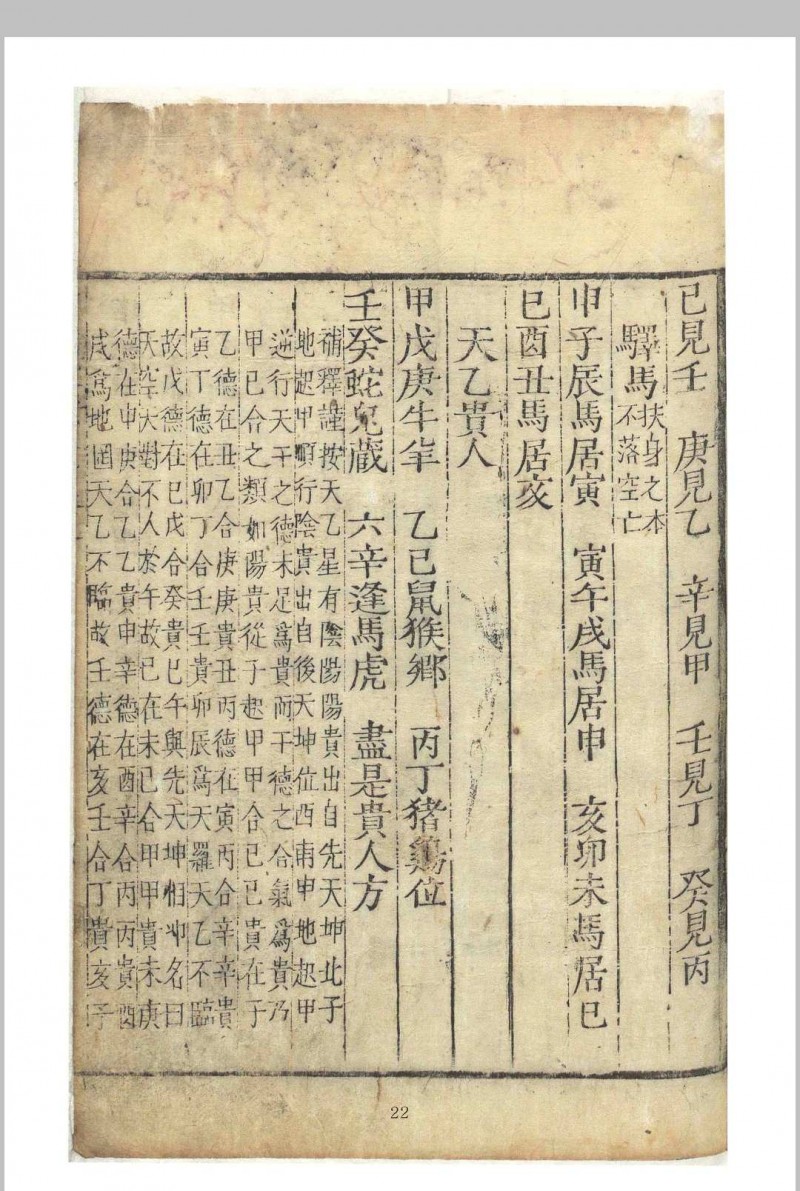 己見壬　庚見乙　辛見甲　壬見丁　癸見丙
驛馬 扶身之本 不落空亡
申子辰馬居寅　寅午戌馬居申　亥卯未馬居巳
巳酉丑馬居亥
天乙貴人
甲戊庚牛羊　乙己鼠猴郷　丙丁猪鷄位
壬癸蛇兔藏　六辛逢馬虎　盡是貴人方
補釋謹按天乙星有陰陽陽貴出自先天坤北子
地起甲順行陰貴出自後天坤位西南申地起甲
逆行天干之德未足爲貴而干德之合氣爲貴乃
甲己合之類如陽貴從子起甲甲合己己貴在子
乙德在丑乙合庚庚貴丑丙德在寅丙合辛辛貴
寅丁德在卯丁合壬壬貴卯辰爲天羅天乙不臨
故戊德在巳戊合癸癸貴巳午與先天坤相冲名曰
天空大對不入於午故己在未己合甲甲貴未庚
德在申庚合乙乙貴申辛德在酉辛合丙丙貴酉
戌爲地网天乙不臨故壬德在亥壬合丁丁貴亥子
22